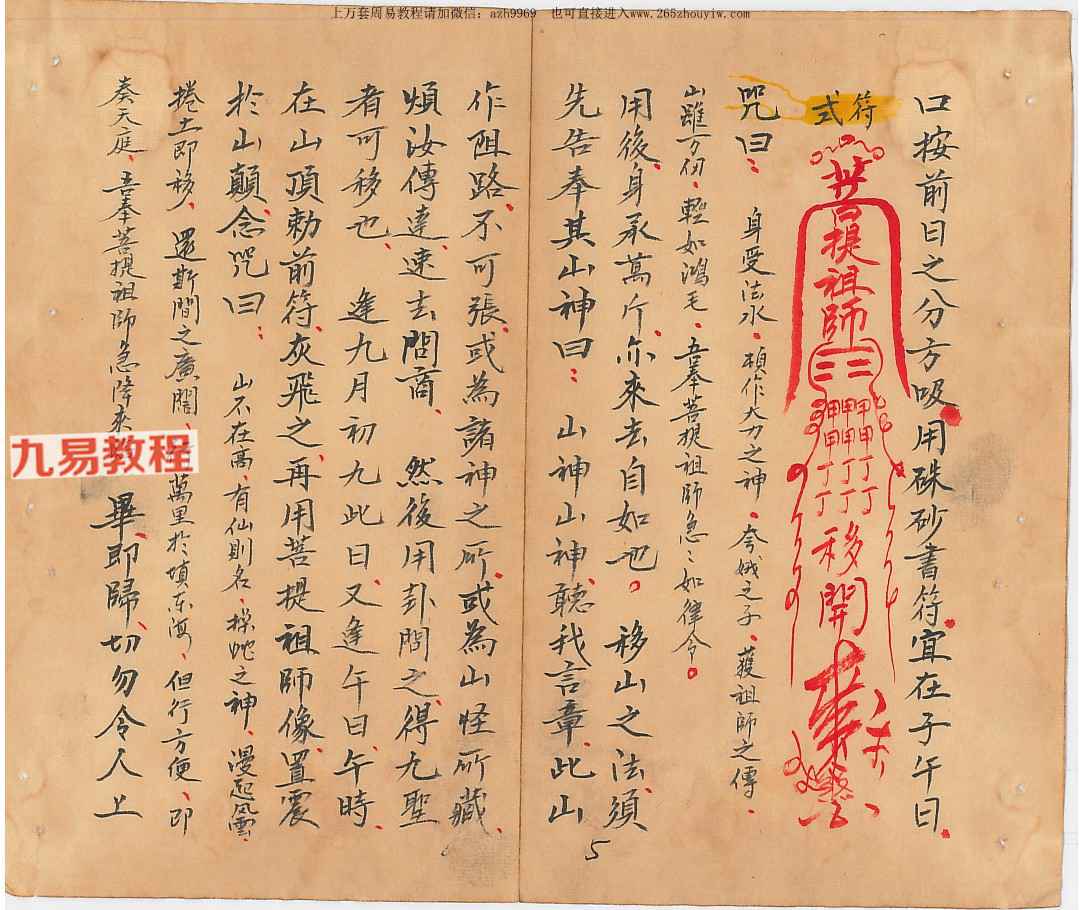 上万套周易教程请加微信：azh9969 也可直接进入www.265zhouyiw.com
口按前日之分方吸用硃砂書符宜在子午日
符式
菩提祖師
甲甲甲
甲甲甲
丁丁丁
丁丁丁
移開
咒曰：身受法水、頓作大力之神、夸娥之子、蒦祖師之傳、
山雖万仞、輕如鴻毛、吾奉菩提祖師急〻如律令。
用後、身承萬斤、亦來去自如也。移山之法、須
先告奉其山神曰：山神山神、聽我言章、此山
作阻路、不可張、或為諸神之所、或為山怪所藏、
煩汝傳達、速去問商、然後用卦問之、得九聖
者可移也、逢九月初九此日、又逢午日、午時、
在山頂勅前符、灰飛之、再用菩提祖師像置震
於山顛、念咒曰：山不在高、有仙則名、操蛇之神、漫起風雲、
捲土即移、還斯間之廣闊、萬里於填东海、但行方便、即
奏天庭、吾奉菩提祖師急降來
畢、即歸、切勿令人上
5
九易教程